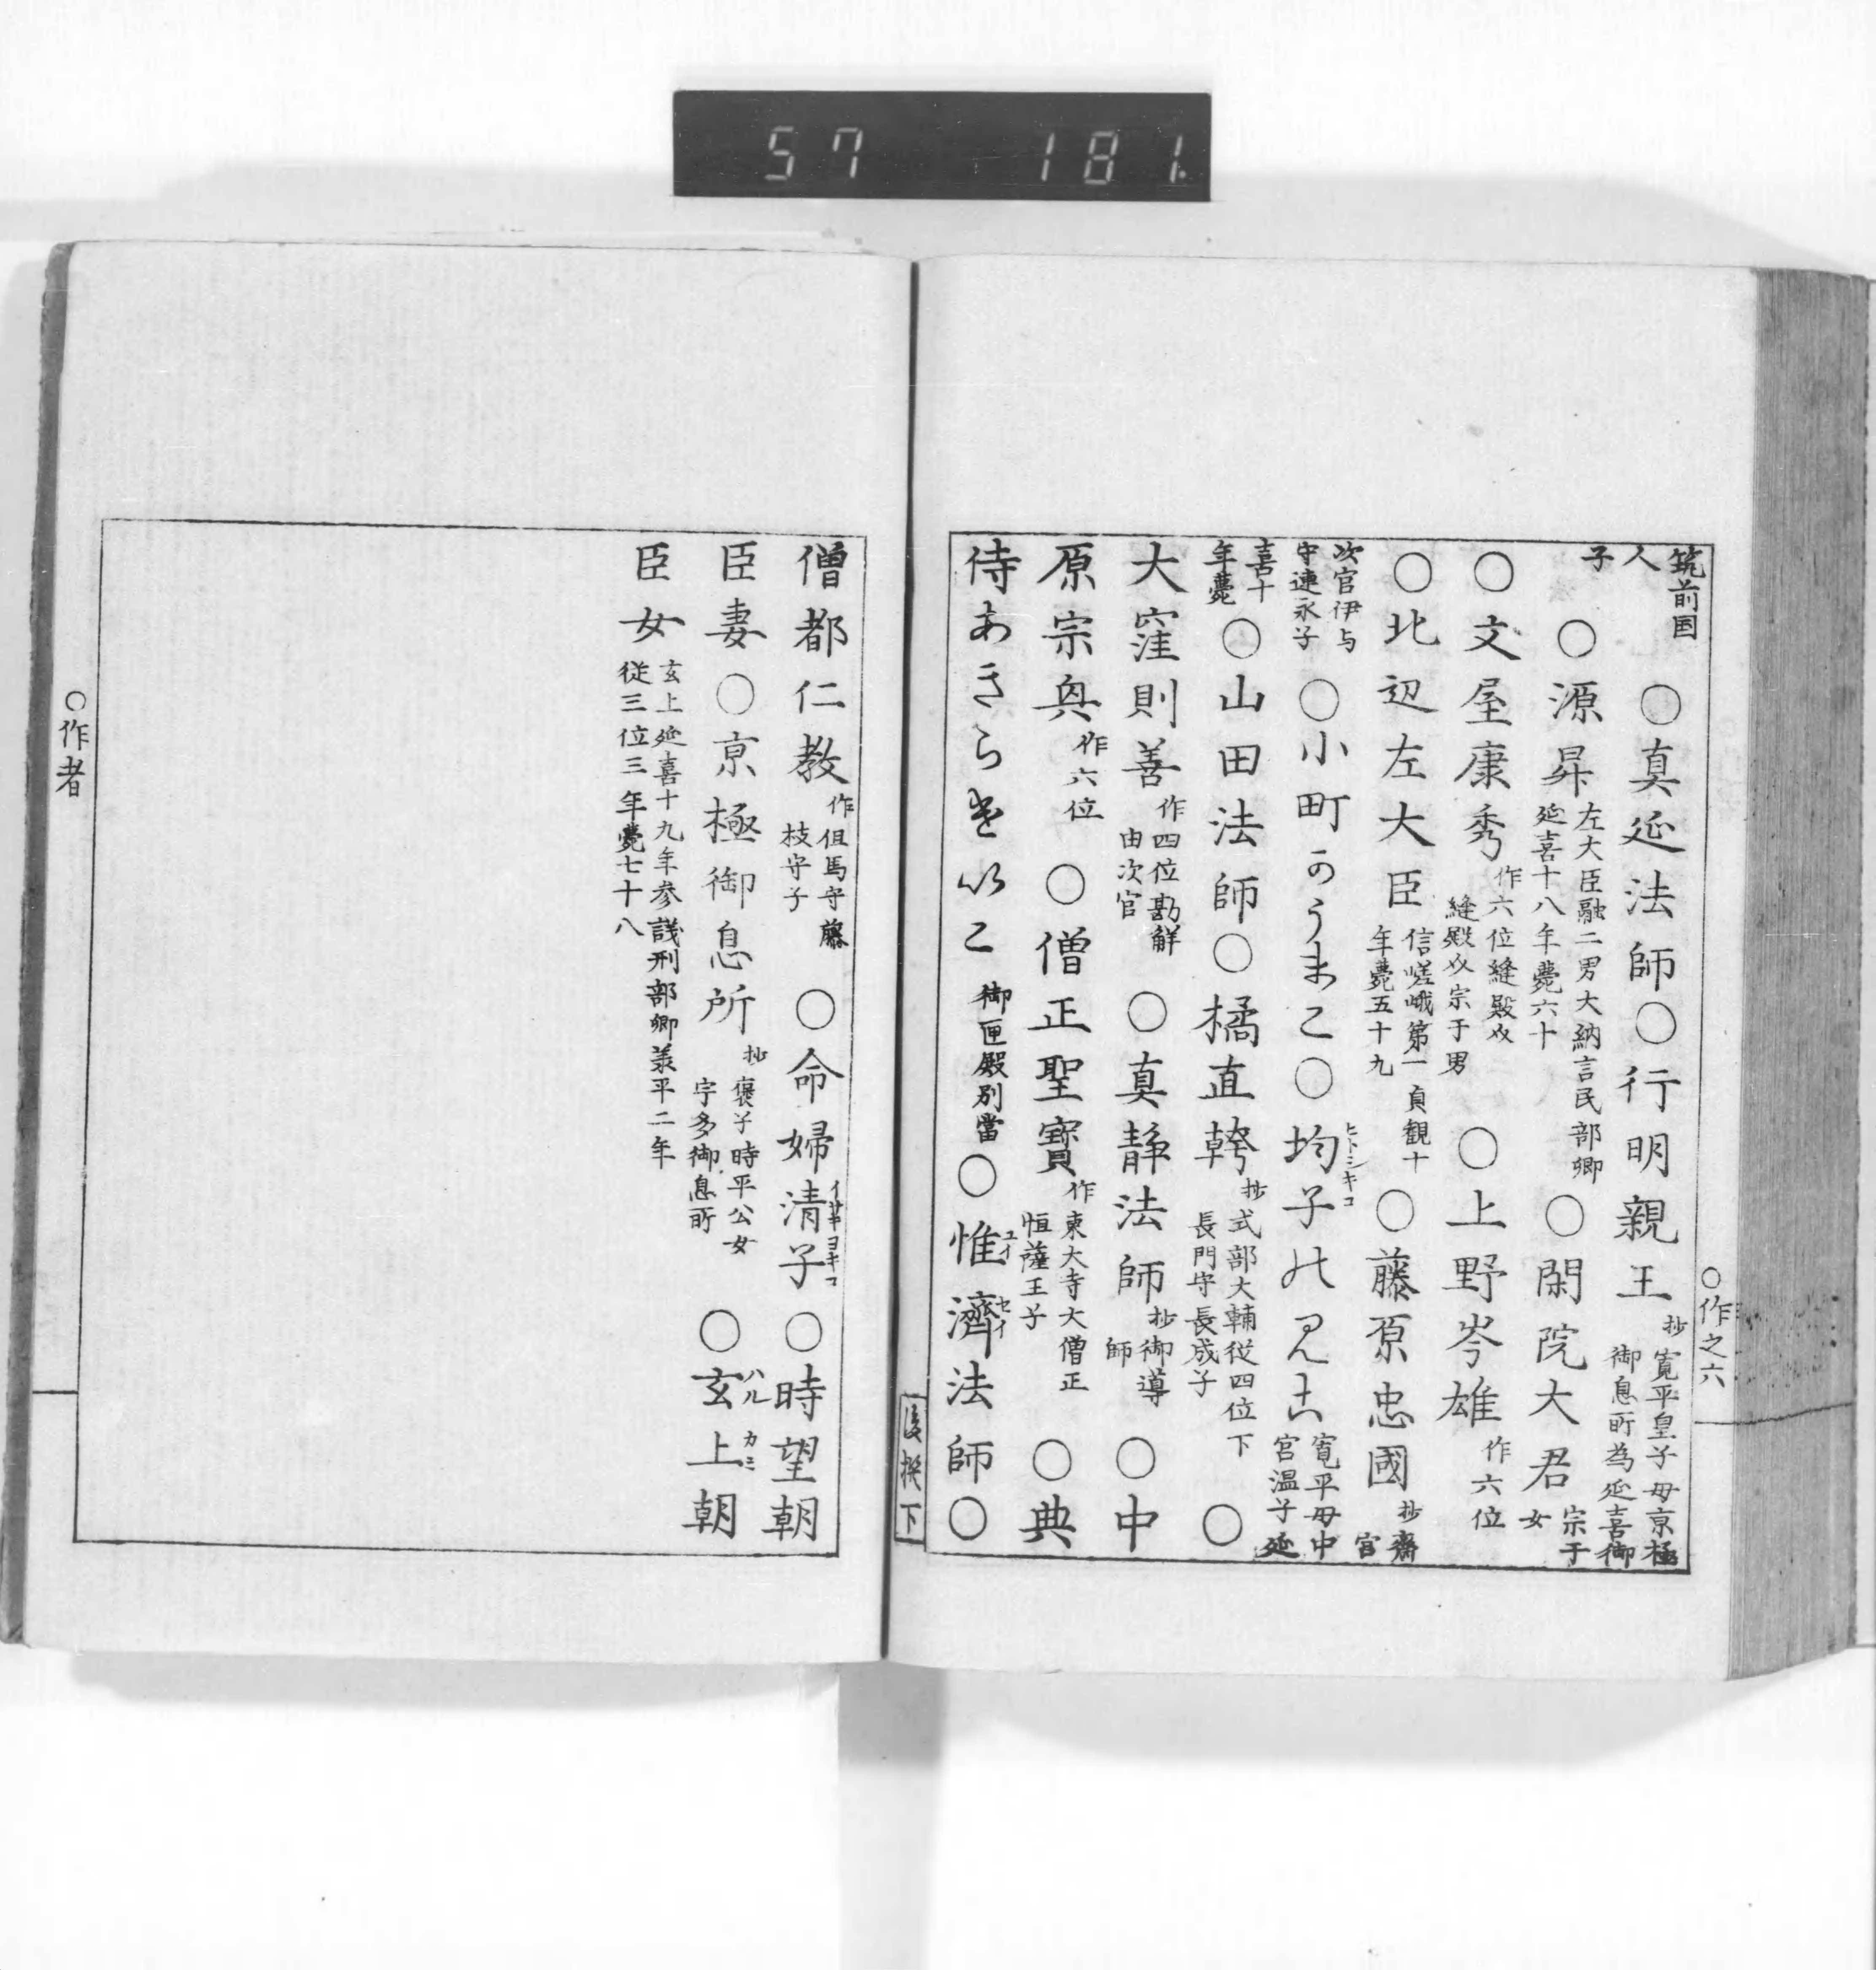 57 181.
○作之六
筑前国人子○真延法師○行明親王抄寛平皇子母京極御息所為延喜御
○源昇左大臣融二男大納言民部卿延喜十八年薨六十○閑院大君宗于女
○文屋康秀作六位縫殿㕝縫殿㕝宗于男○上野岑雄作六位
○北辺左大臣信嵯峨第一貞観十年薨五十九○藤原忠國抄齋宮
次官伊与守連永子○小町かうまこ○均子ヒトシキコ 寛平母中宮温子延
喜十年薨○山田法師○橘直幹抄式部大輔従四位下長門守長成子○
大窪則善作四位勘解由次官○真静法師抄御導師○中
原宗興作六位○僧正聖寶作東大寺大僧正恒薩王子○典
侍あきらけいこ御匣殿別當○惟濟ユイセイ法師○
後撰下
僧都仁教作但馬守藤枝守子○命婦清子イサキヨキコ○時望朝
臣妻○京極御息所抄褒子時平公女宇多御息所○玄上ハルカミ朝
臣女玄上延喜十九年参議刑部卿羕平二年従三位三年薨七十八
○作者